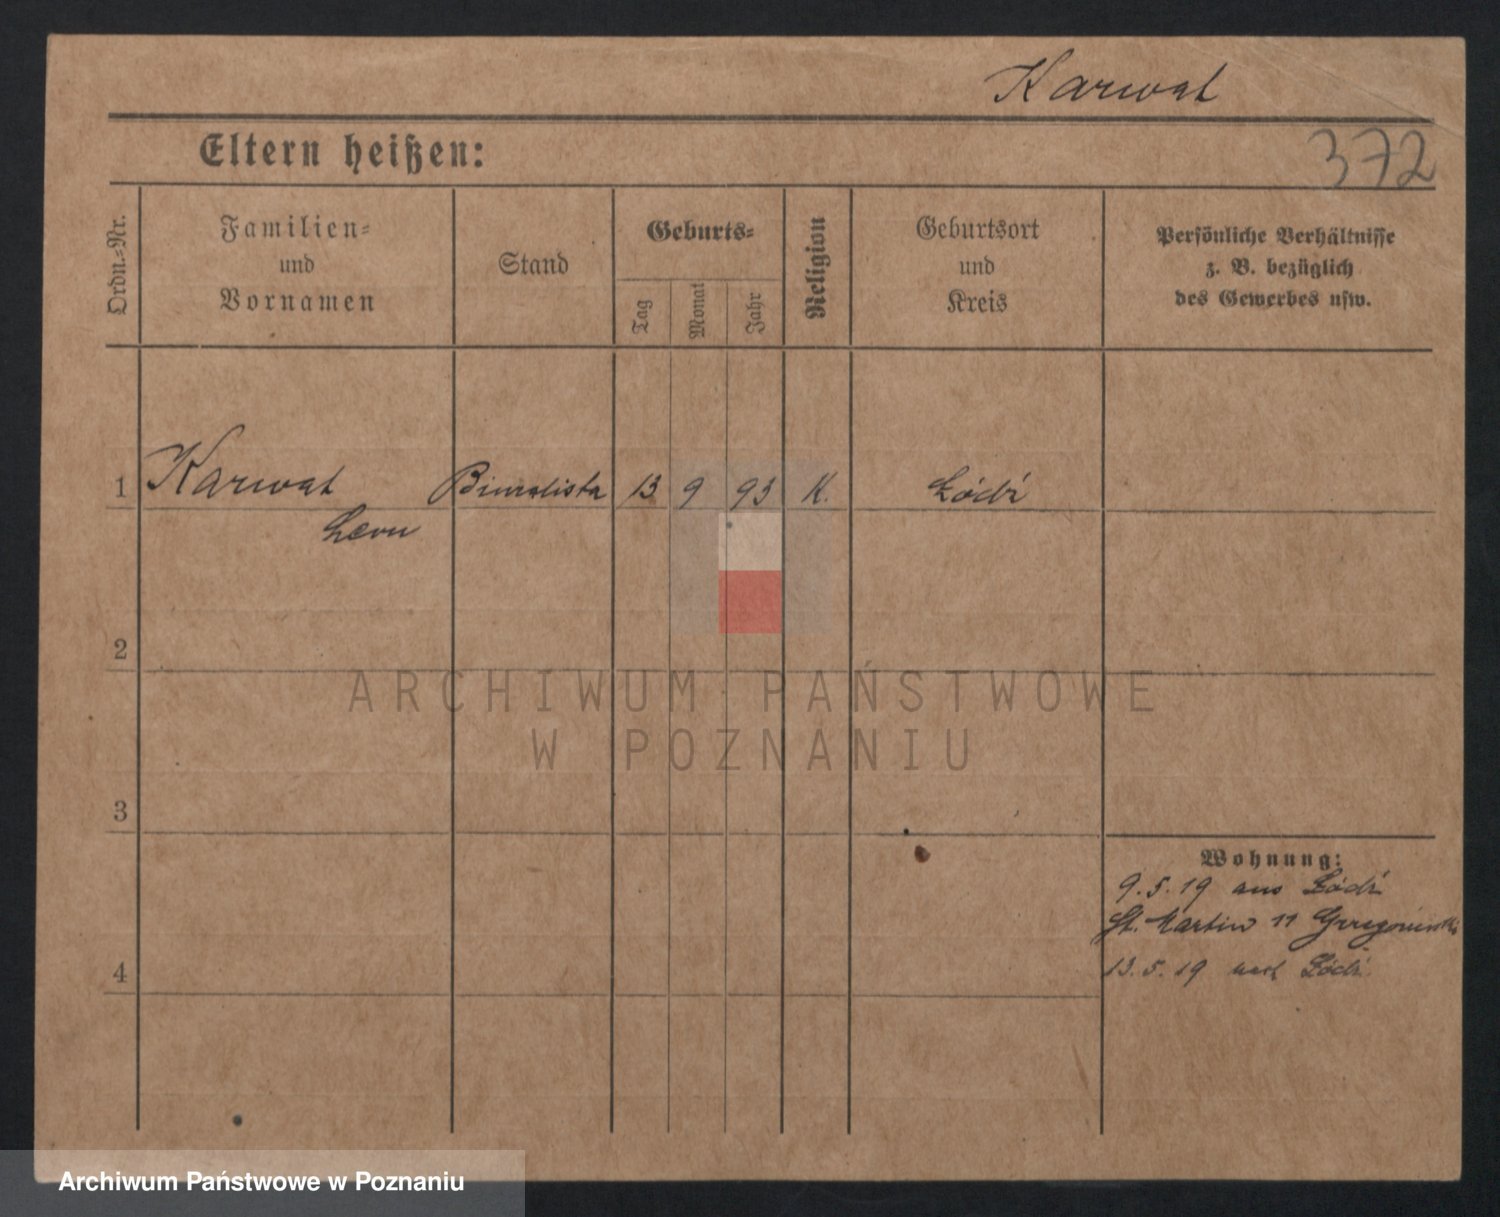 Karwat
Eltern heißen:
372
Ordn.=Nr.
Familien=
und
Vornamen
Stand
Geburts=
Tag
Monat
Jahr
Religion
Geburtsort
und
Kreis
Persönliche Verhältnisse
z. B. bezüglich
des Gewerbes usw.
1 Karwat Biuralista 13 9 93 K. Łódź
Leon
2
ARCHIWUM PAŃSTWOWE
W POZNANIU
3
Wohnung:
9.5.19 aus Łódź
St. Martin 11
4
13.5.19 nach Łódź
Archiwum Państwowe w Poznaniu